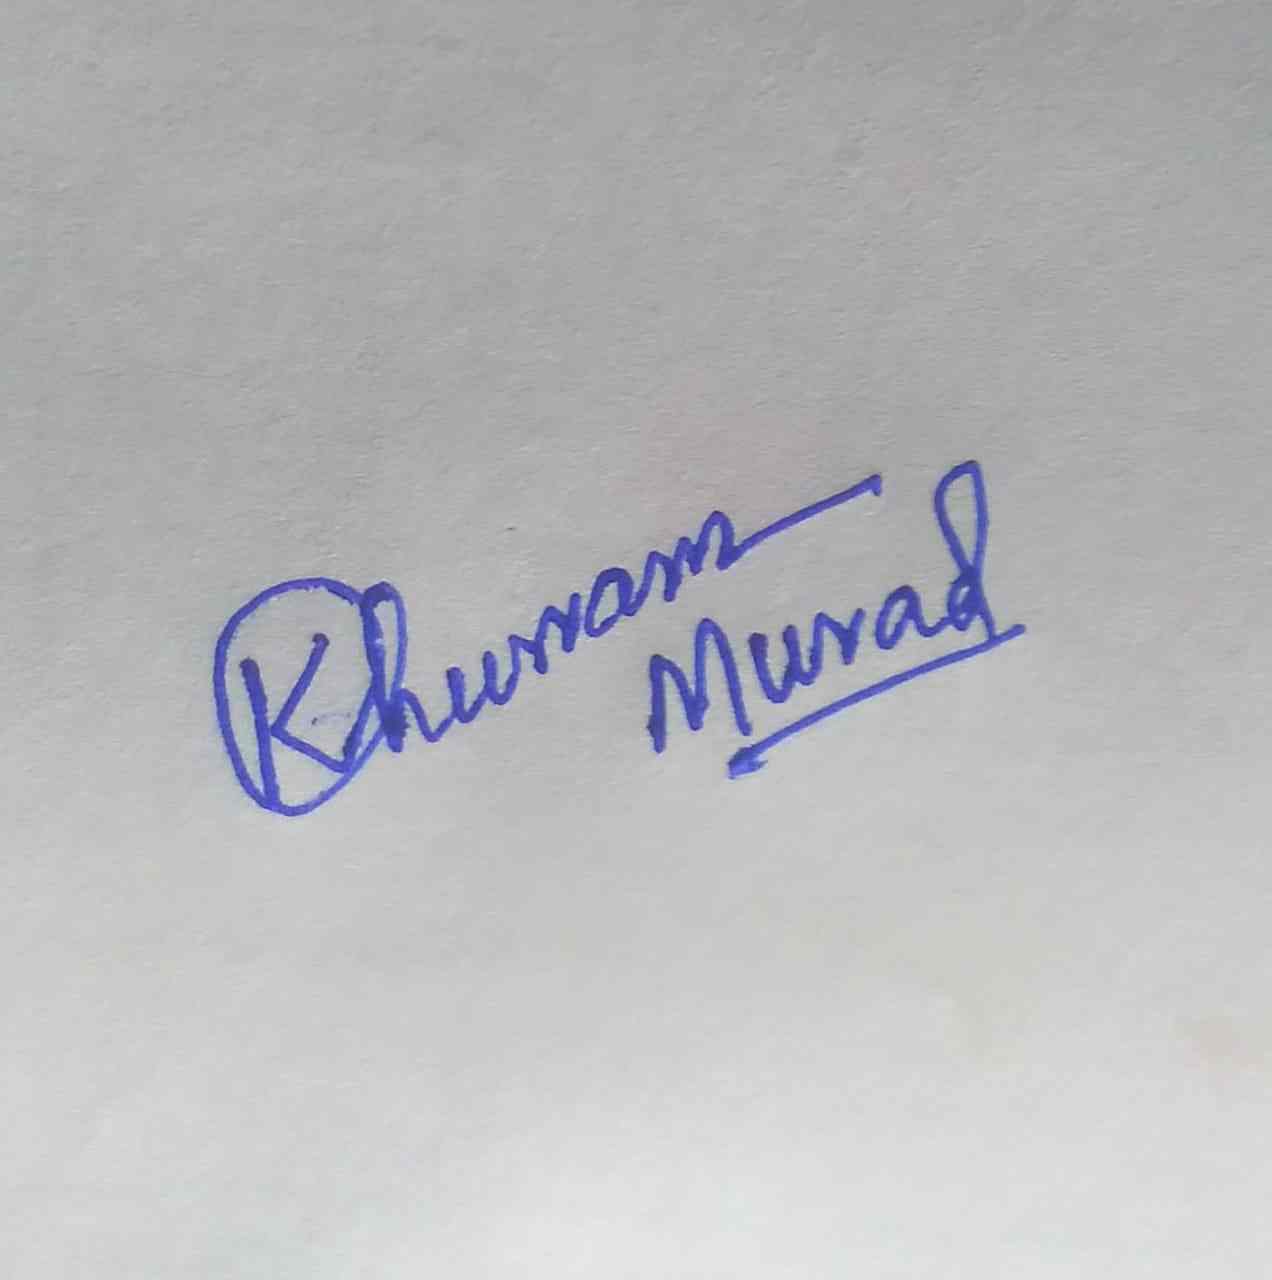 Khurram
Murad